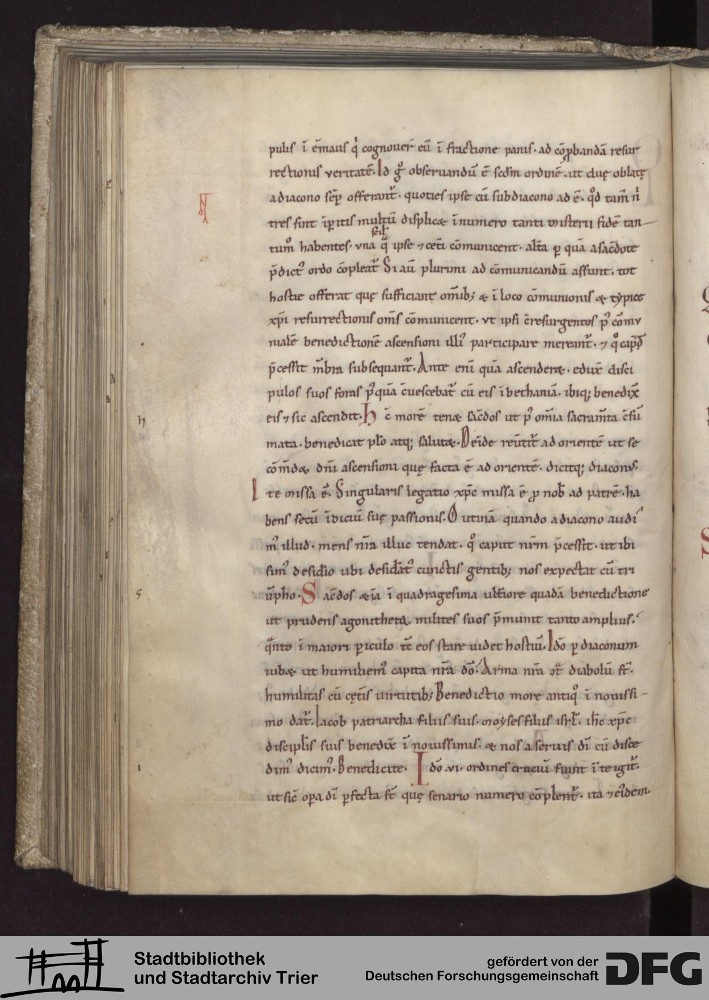 pulis ī emaus q̇ cognouer̄ eū ī fractione panis· ad cōꝓbandā resur
rectionis veritatē. Id gͦ obseruandū ē scdm̄ ordinē· ut duę oblatę
a diacono sēp offerant᷑· quoties ipse cū subdiacono ad ē· qd̄ tam̄ n̄
tres sint īpitis multū displicæ ī numero tanti misterii fidē tan—
tum habentes· vna q̄ ipse ⁊ cet̄i cōmunicent· alt̄a p quā a sac̄dote
p̄dict᷒ ordo cōpleat᷑ Si aū plurimi ad cōmunicandū assunt· tot
hostie offerat quę sufficiant om̄ib; & ī loco cōmunionis & typicę
xp̄i resurrectionis om̄s cōmunicent· vt ipsi c̄resurgentes p᷒ cōmu
nalē benedictionē ascensioni illi᷒ participare mereant᷑· ⁊ qͦ cap᷒
p̄cessit m̄bra subsequant᷑. Ante eni quā ascenderæ· eduxit disci
pulos suos foras p᷒quā c̄uescebat᷑ cū eis ī bethaniā· ibiq; benedix̄
eis ⁊ sic ascendit. h c̄ morē tenæ sac̄dos ut p᷒ om̄ia sacram̄ta c̄sū
mata· benedicat pl̄o atq; salutæ. Deīde reūtit᷑ ad orientē ut se
cōmdæ dn̄i ascensioni quę facta ē ad orientē· dicitq; diacon᷒·
Ite missa ē. Singularis legatio xp̄c missa ē ꝓ nob̄ ad patrē· ha
bens secū īdiciū suę passionis. O utinā quando a diacono audi
m᷒ illud· mens nr̄a illuc tendat· qͦ caput nr̄m p̄cessit· ut ibi
sim᷒ desid̄io ubi desid̄at᷒ cunctis gentib; nos expectat cū tri
ūpho. Sac̄dos &iā ī quadragesima ult̄iore quadā benedictione
ut prudens agonitheta· milites suos p̄munit tanto amplius·
q̄nto ī maiori piculo tc̄ eos stare uidet hostiū. Idō p diaconum
iubæ ut humiliem᷒ capita nr̄a dō. Arma nr̄a ꝯt᷒ diabolū st̄·
humilitas cū cęt̄is uirtutib; Benedictio more antiqͦ ī nouissi—
mo dat᷑. Iacob patriarcha filiis suis· moyses filiis isr̄l· ih̄c xp̄c
disciplis suis benedix̄ ī nouissimis· & nos a seruis dī cū disce
dim᷒ dicim᷒· Benedicite. Idō .vi. ordines crucium fiunt ī te igit᷑·
ut sic̄ oꝑa dī pfecta st̄ quę senario numero cōplent᷑· ita ⁊ eīdem
h
5
1
Stadtbibliothek
und Stadtarchiv Trier
gefördert von der
Deutschen Forschungsgemeinschaft
DFG